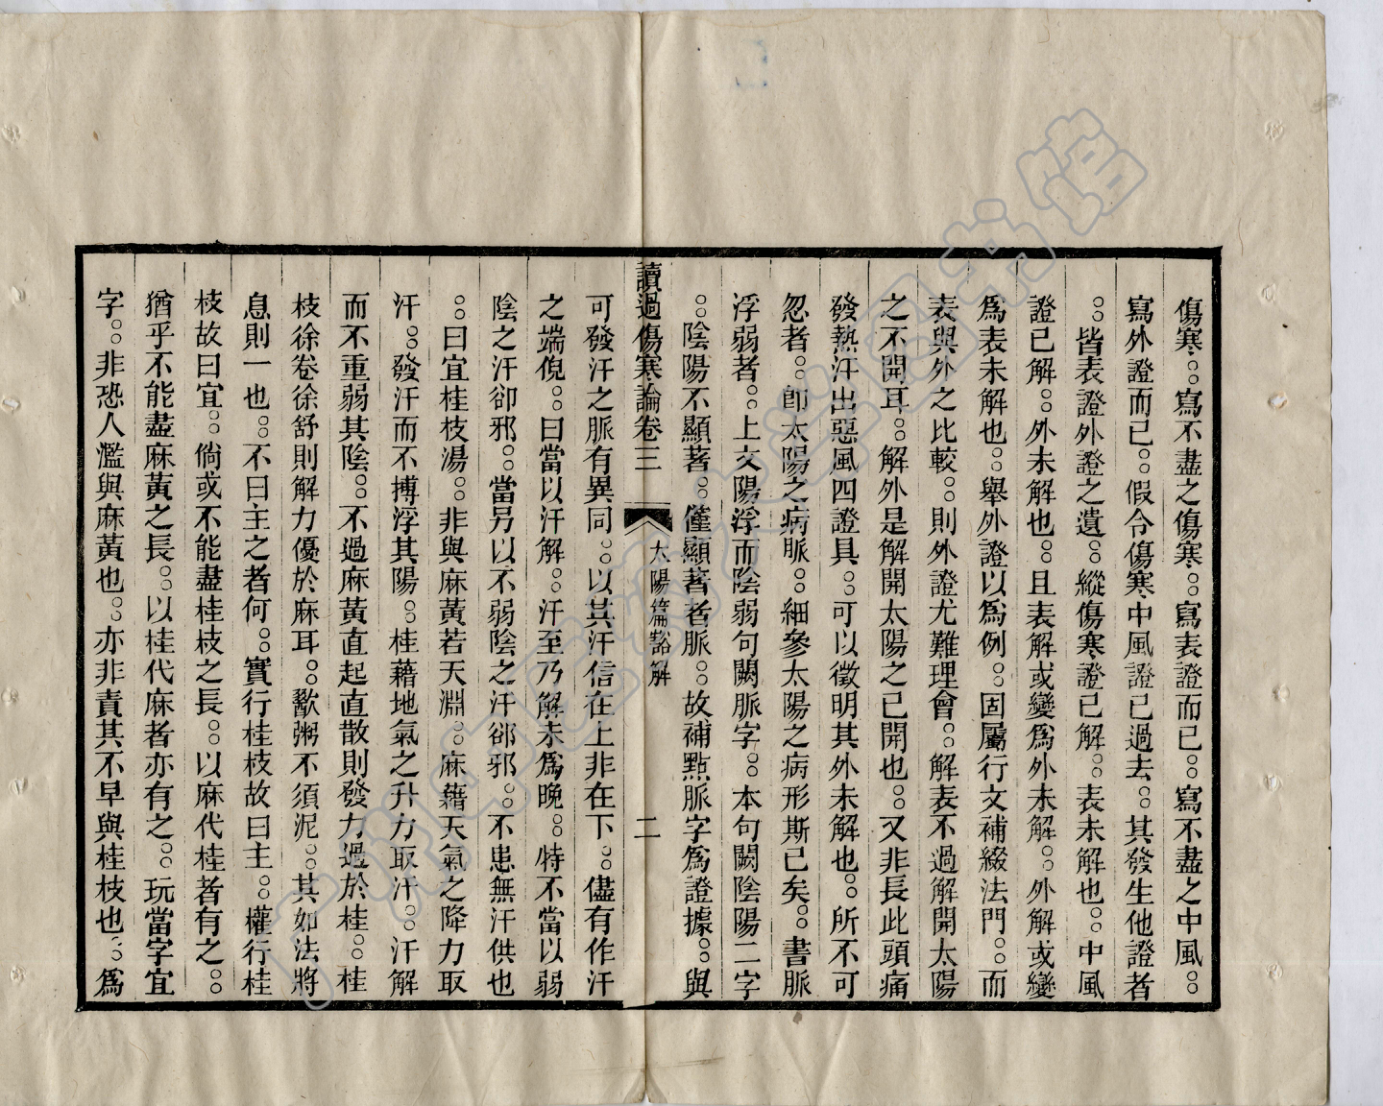 傷寒○○寫不盡之傷寒○○寫表證而已○○寫不盡之中風○○
寫外證而已○○假令傷寒中風證已過去○○其發生他證者
○○皆表證外證之遺○○縱傷寒證已解○○表未解也○○中風
證已解○○外未解也○○且表解或變爲外未解○○外解或變
爲表未解也○○舉外證以爲例○○固屬行文補綴法門○○而
表與外之比較○○則外證尤難理會○○解表不過解開太陽
之不開耳○○解外是解開太陽之已開也○○又非長此頭痛
發熱汗出惡風四證具○○可以徵明其外未解也○○所不可
忽者○○卽太陽之病脈○○細參太陽之病形斯已矣○○書脈
浮弱者○○上文陽浮而陰弱句闕脈字○○本句闕陰陽二字
○○陰陽不顯著○○僅顯著者脈○○故補點脈字爲證據○○與
讀過傷寒論卷三 太陽篇豁解 二
可發汗之脈有異同○○以其汗信在上非在下○○儘有作汗
之端倪○○曰當以汗解○○汗至乃解未爲晚○○特不當以弱
陰之汗卻邪○○當另以不弱陰之汗卻邪○○不患無汗供也
○○曰宜桂枝湯○○非與麻黃若天淵○○麻藉天氣之降力取
汗○○發汗而不搏浮其陽○○桂藉地氣之升力取汗○○汗解
而不重弱其陰○○不過麻黃直起直散則發力過於桂○○桂
枝徐卷徐舒則解力優於麻耳○○歠粥不須泥○○其如法將
息則一也○○不曰主之者何○○實行桂枝故曰主○○權行桂
枝故曰宜○○倘或不能盡桂枝之長○○以麻代桂者有之○○
猶乎不能盡麻黃之長○○以桂代麻者亦有之○○玩當字宜
字○○非恐人濫與麻黃也○○亦非責其不早與桂枝也○○爲